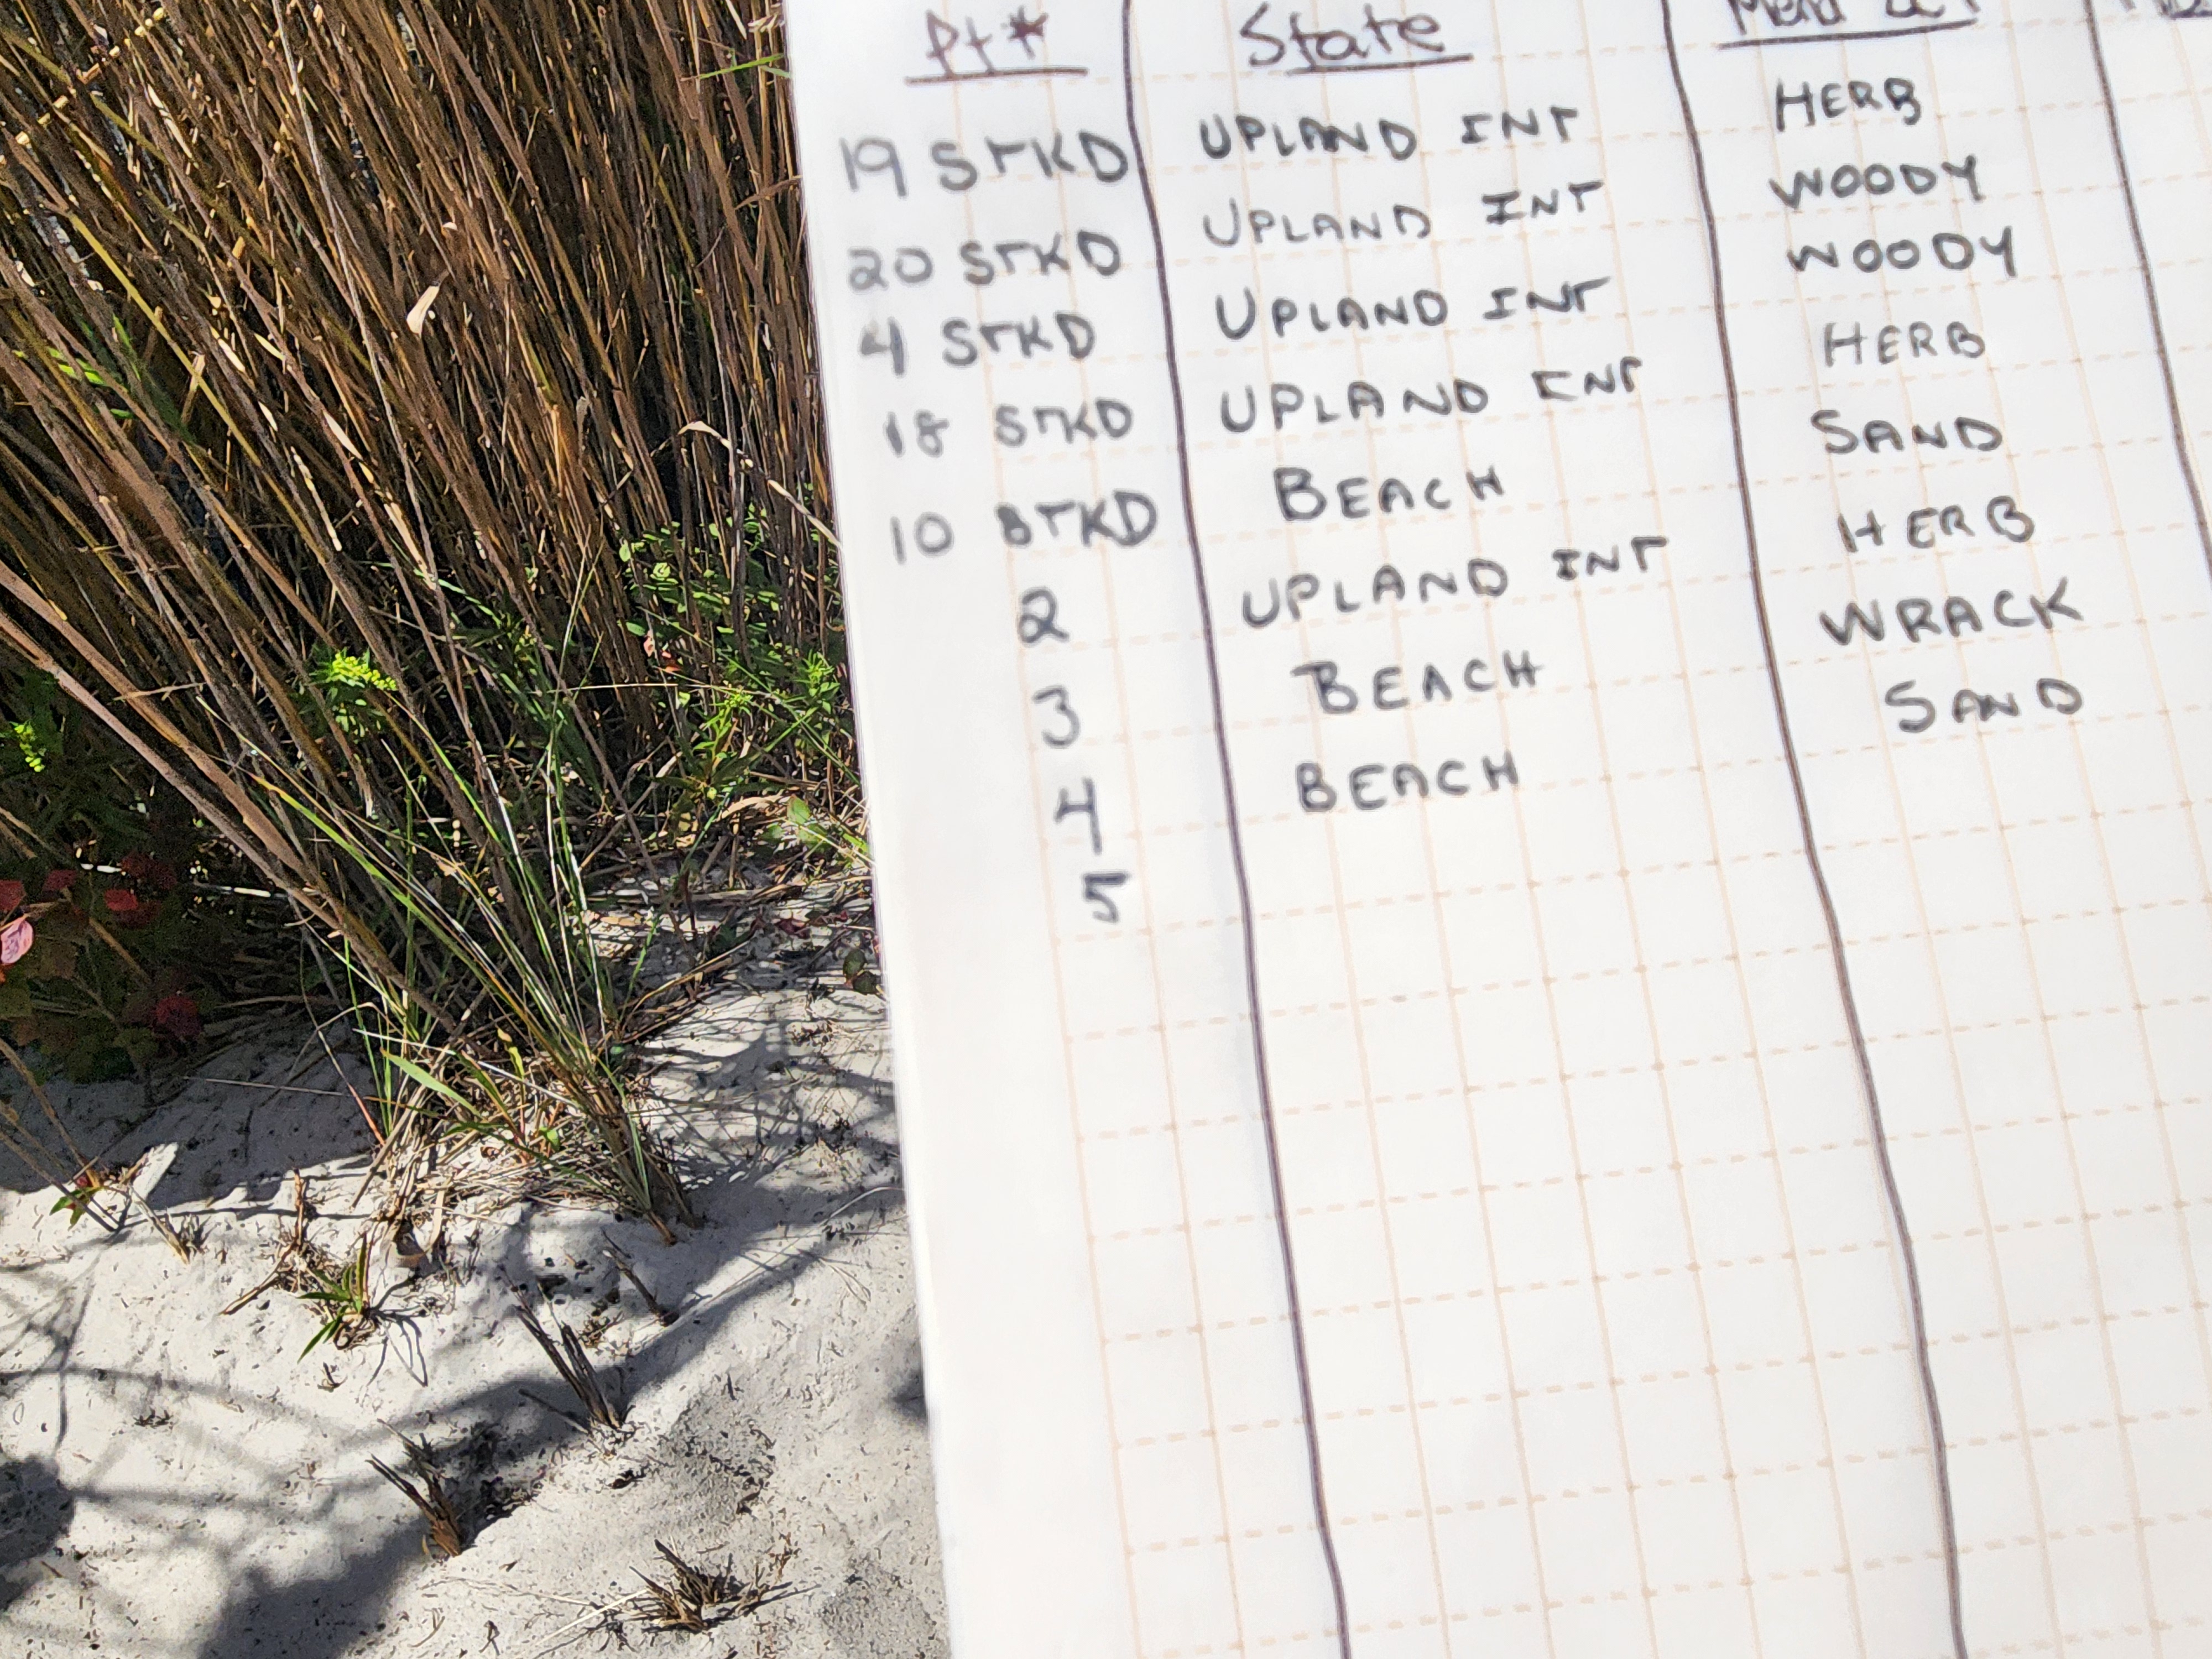 Pt# State
19 STKD UPLAND INT HERB
20 STKD UPLAND INT WOODY
4 STKD UPLAND INT WOODY
18 STKD UPLAND INT HERB
10 STKD BEACH SAND
2 UPLAND INT HERB
3 BEACH WRACK
4 BEACH SAND
5